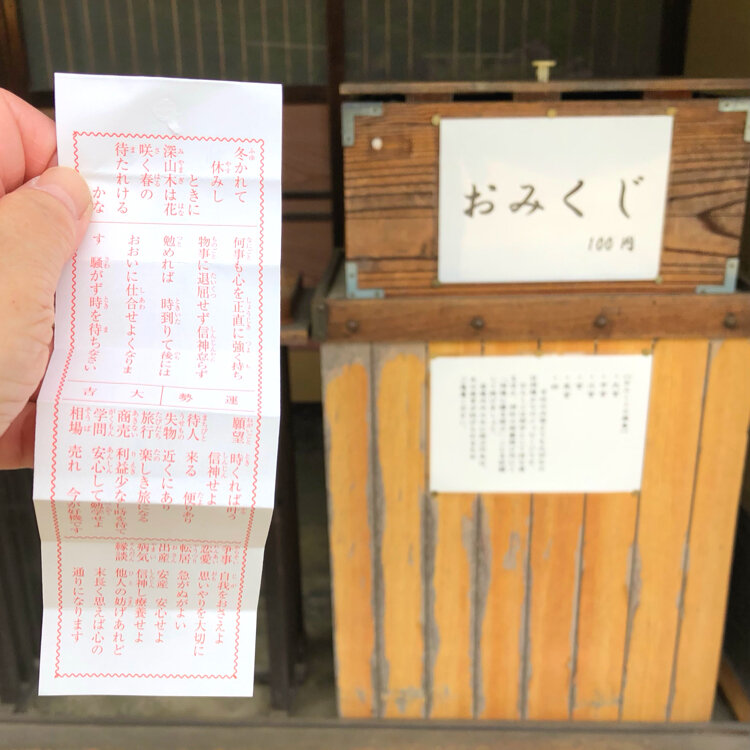 冬かれて
休みし
ときに
深山木は花
咲く春の
待たれける
かな
何事も心を正直に強く持ち
物事に退屈せず信神怠らず
勉めれば 時到りて後には
おおいに仕合せよくなりま
す 騒がず時を待ちなさい
運勢 大吉
願望 時くれば叶う
信神せよ
待人 来る 便りあり
失物 近くにあり
旅行 楽しき旅になる
商売 利益少なし時を待て
学問 安心して勉学せよ
相場 売れ 今が好機です
争事 自我をおさえよ
恋愛 思いやりを大切に
転居 急がぬがよい
出産 安産 安心せよ
病気 信神し療養せよ
縁談 他人の妨げあれど
末長く思えば心の
通りになります
おみくじ
100円